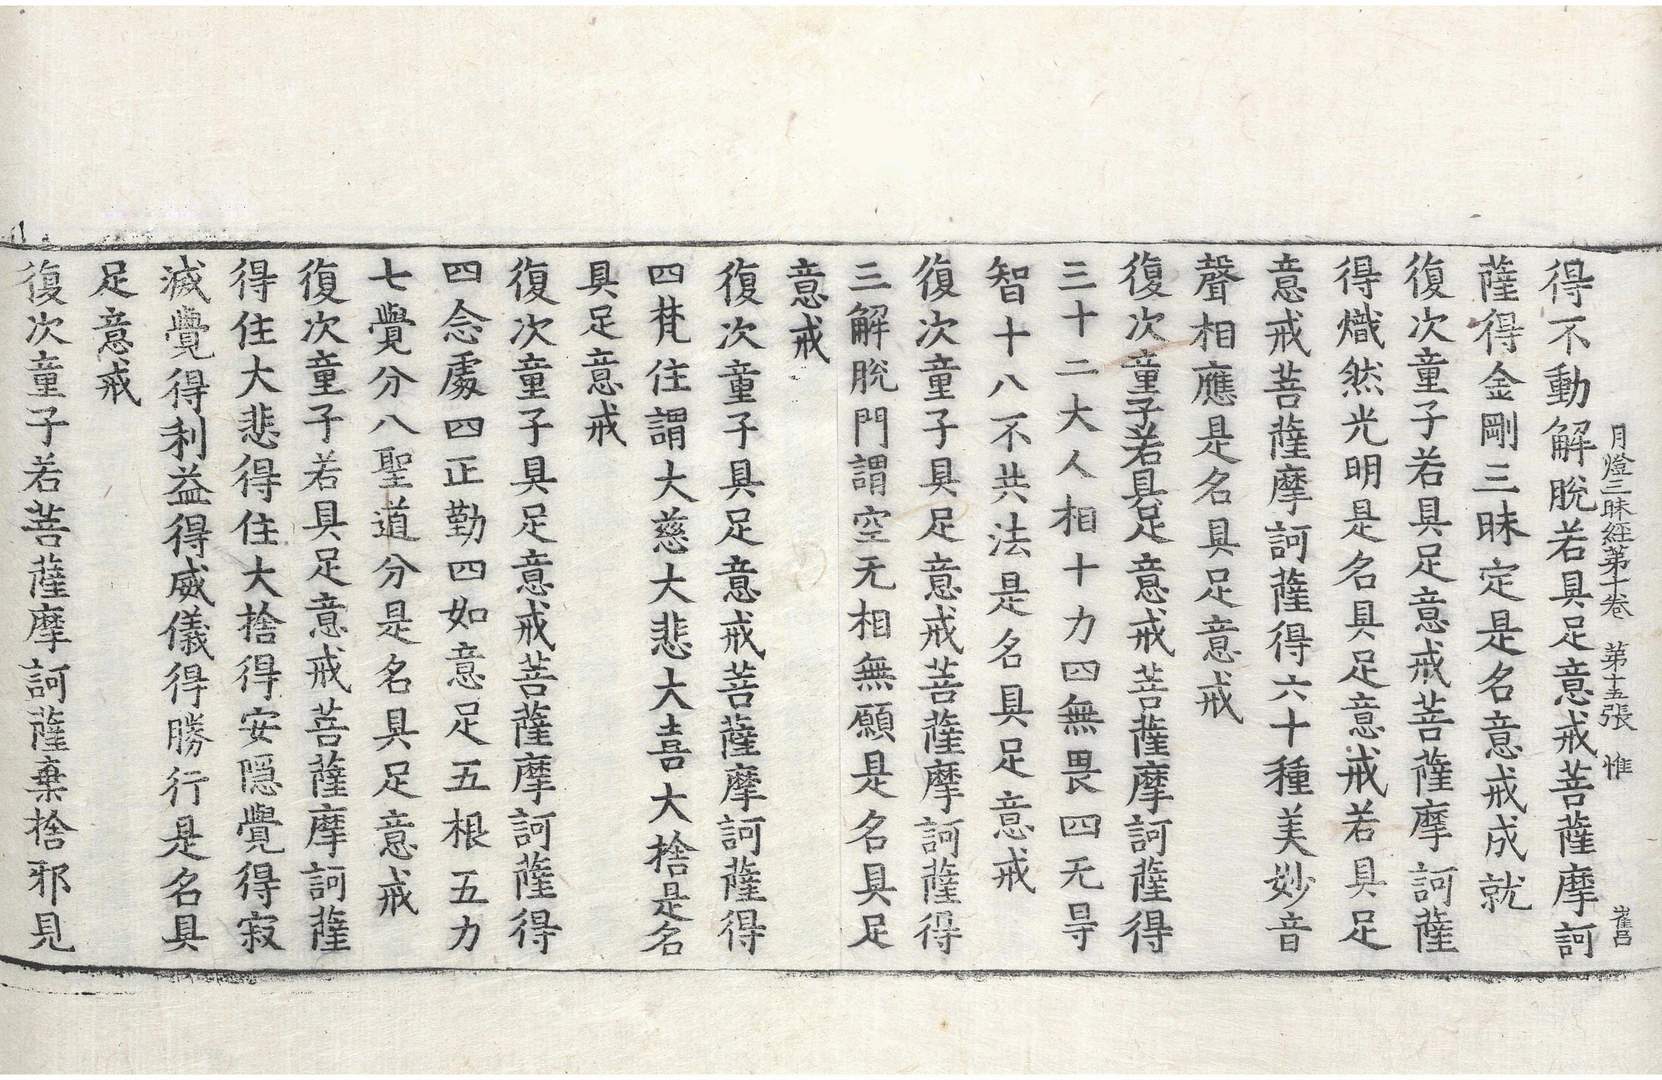 月燈三昧經第十卷　第十五張　惟　崔呂
得不動解脫若具足意戒菩薩摩訶
薩得金剛三昧定是名意戒成就
復次童子若具足意戒菩薩摩訶薩
得熾然光明是名具足意戒若具足
意戒菩薩摩訶薩得六十種美妙音
聲相應是名具足意戒
復次童子若具足意戒菩薩摩訶薩得
三十二大人相十力四無畏四无㝵
智十八不共法是名具足意戒
復次童子具足意戒菩薩摩訶薩得
三解脫門謂空无相無願是名具足
意戒
復次童子具足意戒菩薩摩訶薩得
四梵住謂大慈大悲大喜大捨是名
具足意戒
復次童子具足意戒菩薩摩訶薩得
四念處四正勤四如意足五根五力
七覺分八聖道分是名具足意戒
復次童子若具足意戒菩薩摩訶薩
得住大悲得住大捨得安隱覺得寂
滅覺得利益得威儀得勝行是名具
足意戒
復次童子若菩薩摩訶薩棄捨邪見